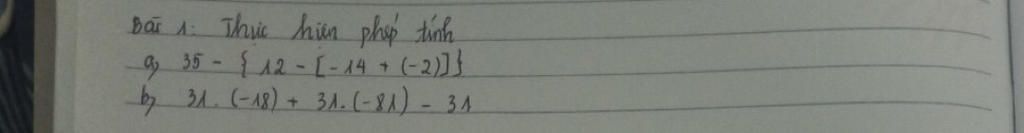 Bài 1: Thực hiện phép tính
a, 35 - { 12 - [-14 + (-2)]}
b, 31 . (-18) + 31. (-81) - 31